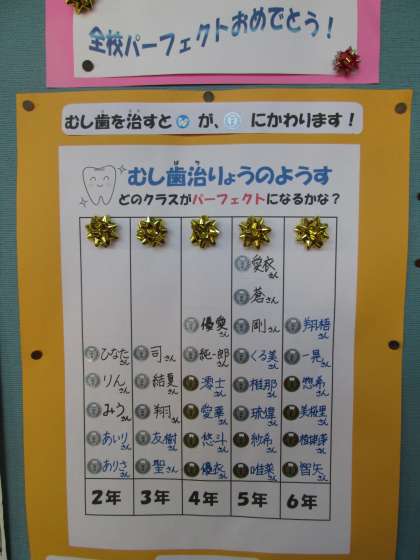 全校パーフェクトおめでとう!
むし歯を治すと が、 にかわります!
むし歯治りょうのようす
どのクラスがパーフェクトになるかな?
愛家さん
蒼さん
優愛さん 剛さん 翔梧さん
ひなたさん 司さん 純一郎さん くる美さん 一晃さん
りんさん 結夏さん 澪士さん 椎那さん 惣希さん
みうさん 翔さん 愛華さん 琉偉さん 美桜里さん
あいりさん 友樹さん 悠斗さん 紗希さん
ありささん 聖さん 優衣さん 唯菜さん 智矢さん
2年 3年 4年 5年 6年